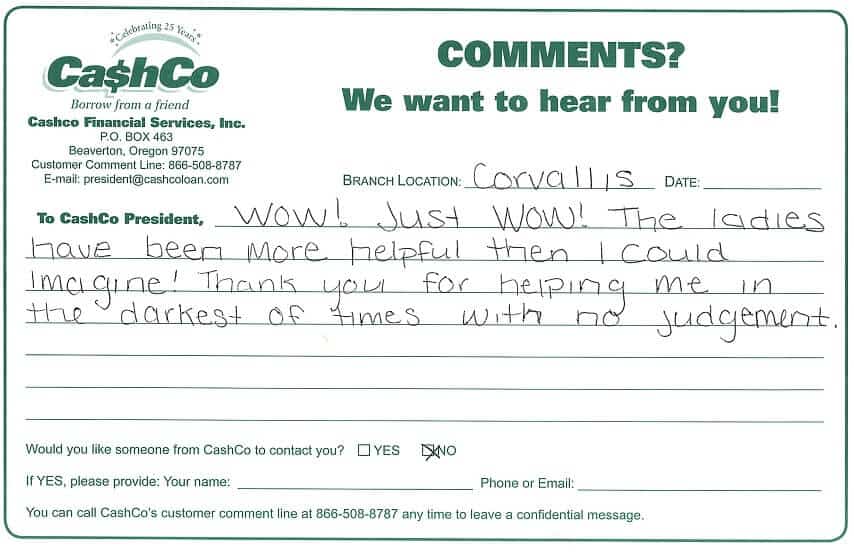 Celebrating 25 Years
Ca$hCo
Borrow from a friend
Cashco Financial Services, Inc.
P.O. BOX 463
Beaverton, Oregon 97075
Customer Comment Line: 866-508-8787
E-mail: president@cashcoloan.com
COMMENTS?
We want to hear from you!
BRANCH LOCATION: Corvallis DATE:
To CashCo President, WOW! Just WOW! The ladies
have been more helpful then I could
Imagine! Thank you for helping me in
the darkest of times with no judgement.
Would you like someone from CashCo to contact you? YES NO
If YES, please provide: Your name: Phone or Email:
You can call CashCo's customer comment line at 866-508-8787 any time to leave a confidential message.